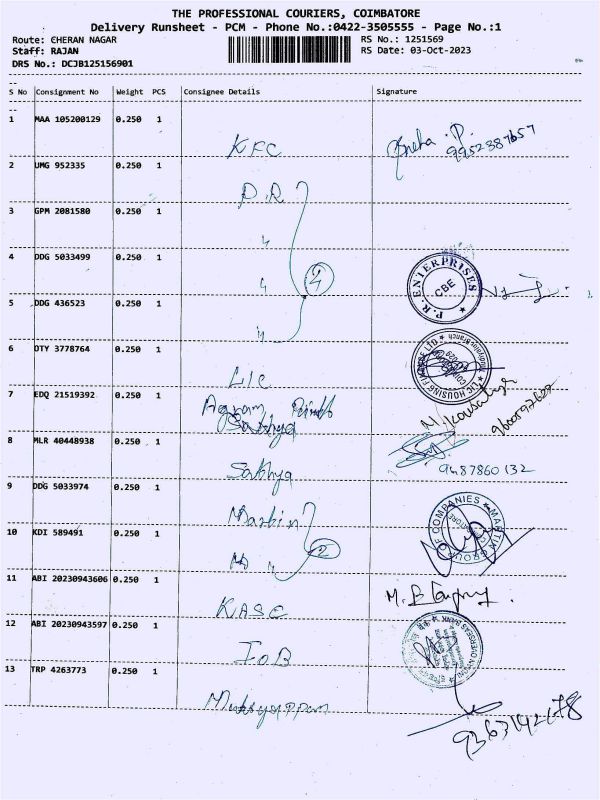 THE PROFESSIONAL COURIERS, COIMBATORE
Delivery Runsheet - PCM - Phone No.:0422-3505555 - Page No.:1
Route: CHERAN NAGAR RS No.: 1251569
Staff: RAJAN RS Date: 03-Oct-2023
DRS No.: DCJB125156901
S No Consignment No Weight PCS Consignee Details Signature
1 MAA 105200129 0.250 1 KFC Sneha .P. 9952387657
2 UMG 952335 0.250 1 P.R
3 GPM 2081580 0.250 1 "
4 DDG 5033499 0.250 1 " 4 P.R. ENTERPRISES CBE
5 DDG 436523 0.250 1 "
6 DTY 3778764 0.250 1 LIC LIC HOUSING FINANCE LTD
7 EDQ 21519392 0.250 1 Agram Print
Sathya
8 MLR 40448938 0.250 1 Sathya 9487860132
9 DDG 5033974 0.250 1 Martin MARTIN GROUP OF COMPANIES
10 KDI 589491 0.250 1 " 2
11 ABI 20230943606 0.250 1 KASC
12 ABI 20230943597 0.250 1 IOB
13 TRP 4263773 0.250 1